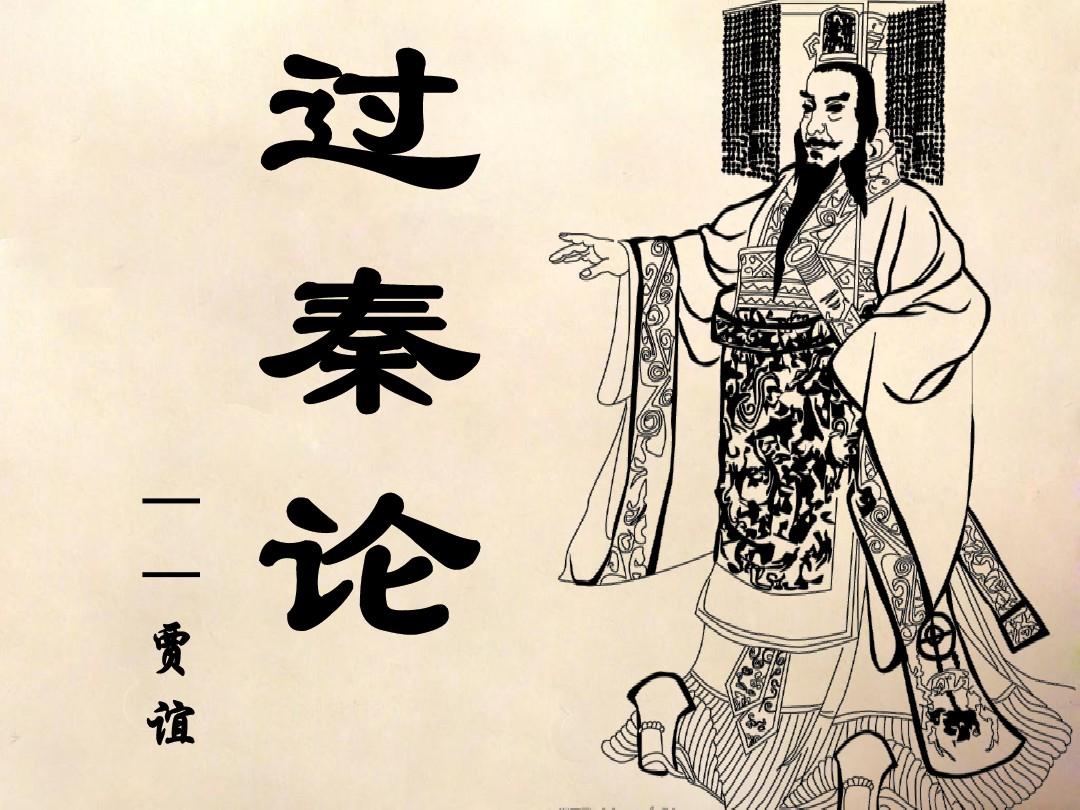 过秦论
——贾谊